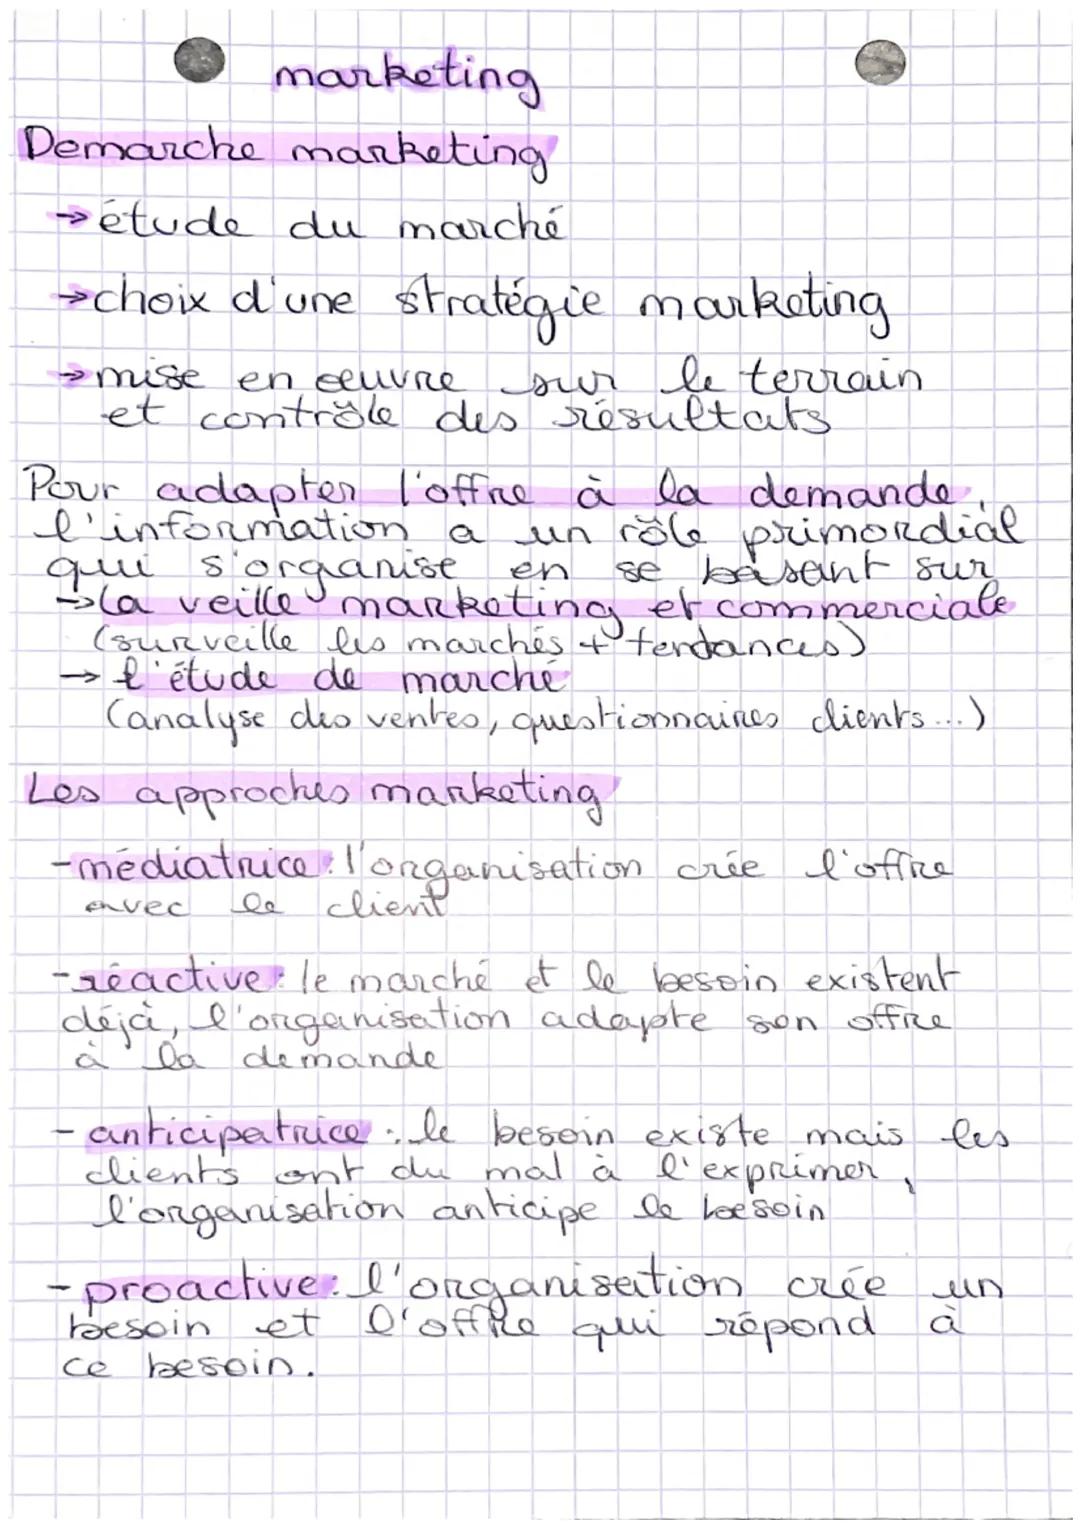 marketing
Demarche marketing
→ étude du marché
→ choix d'une stratégie marketing
→ mise en œuvre sur le terrain
et contrôle des résultats
Pour adapter l'offre à la demande,
l'information a un rôle primordial
qui s'organise en se basant sur
→ La veille marketing et commerciale
(surveille les marchés + tendances)
→ l'étude de marché
(analyse des ventes, questionnaires clients...)
Les approches marketing
- médiatrice : l'organisation crée l'offre
avec le client
- réactive : le marché et le besoin existent
déjà, l'organisation adapte son offre
à la demande
- anticipatrice : le besoin existe mais les
clients ont du mal à l'exprimer,
l'organisation anticipe le besoin
- proactive : l'organisation crée un
besoin et l'offre qui répond à
ce besoin.